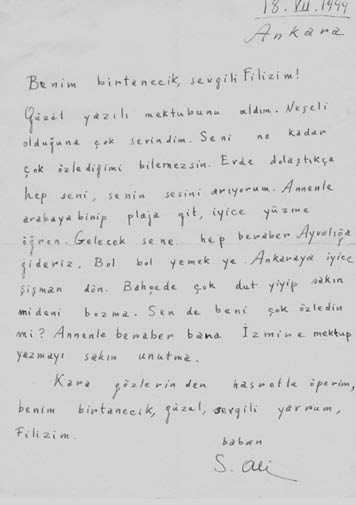 18. VII. 1944
Ankara
Benim birtanecik, sevgili Filizim!
Güzel yazılı mektubunu aldım. Neşeli
olduğuna çok serindim. Seni ne kadar
çok özlediğimi bilemezsin. Evde dolaştıkça
hep seni, senin sesini arıyorum. Annenle
arabaya binip plaja git, iyice yüzme
öğren. Gelecek sene hep beraber Ayvalığa
gideriz. Bol bol yemek ye. Ankaraya iyice
şişman dön. Bahçede çok dut yiyip sakın
mideni bozma. Sen de beni çok özledin
mi? Annenle beraber bana İzmire mektup
yazmayı sakın unutma.
Kara gözlerinden hasretle öperim,
benim birtanecik, güzel, sevgili yavrum,
Filizim.
baban
S. Ali